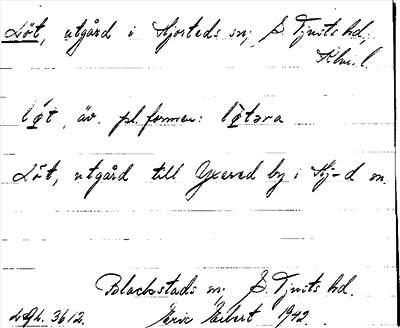 Löt, utgård i Hjorteds sn; S. Tjusts hd;
Klm. l.
løt, äv. pl. formen: løtəra
Löt, utgård till Yxered by i Hj-d sn.
Blackstads sn; S. Tjusts hd.
LUL. 3612. Eric Elbert 1942.